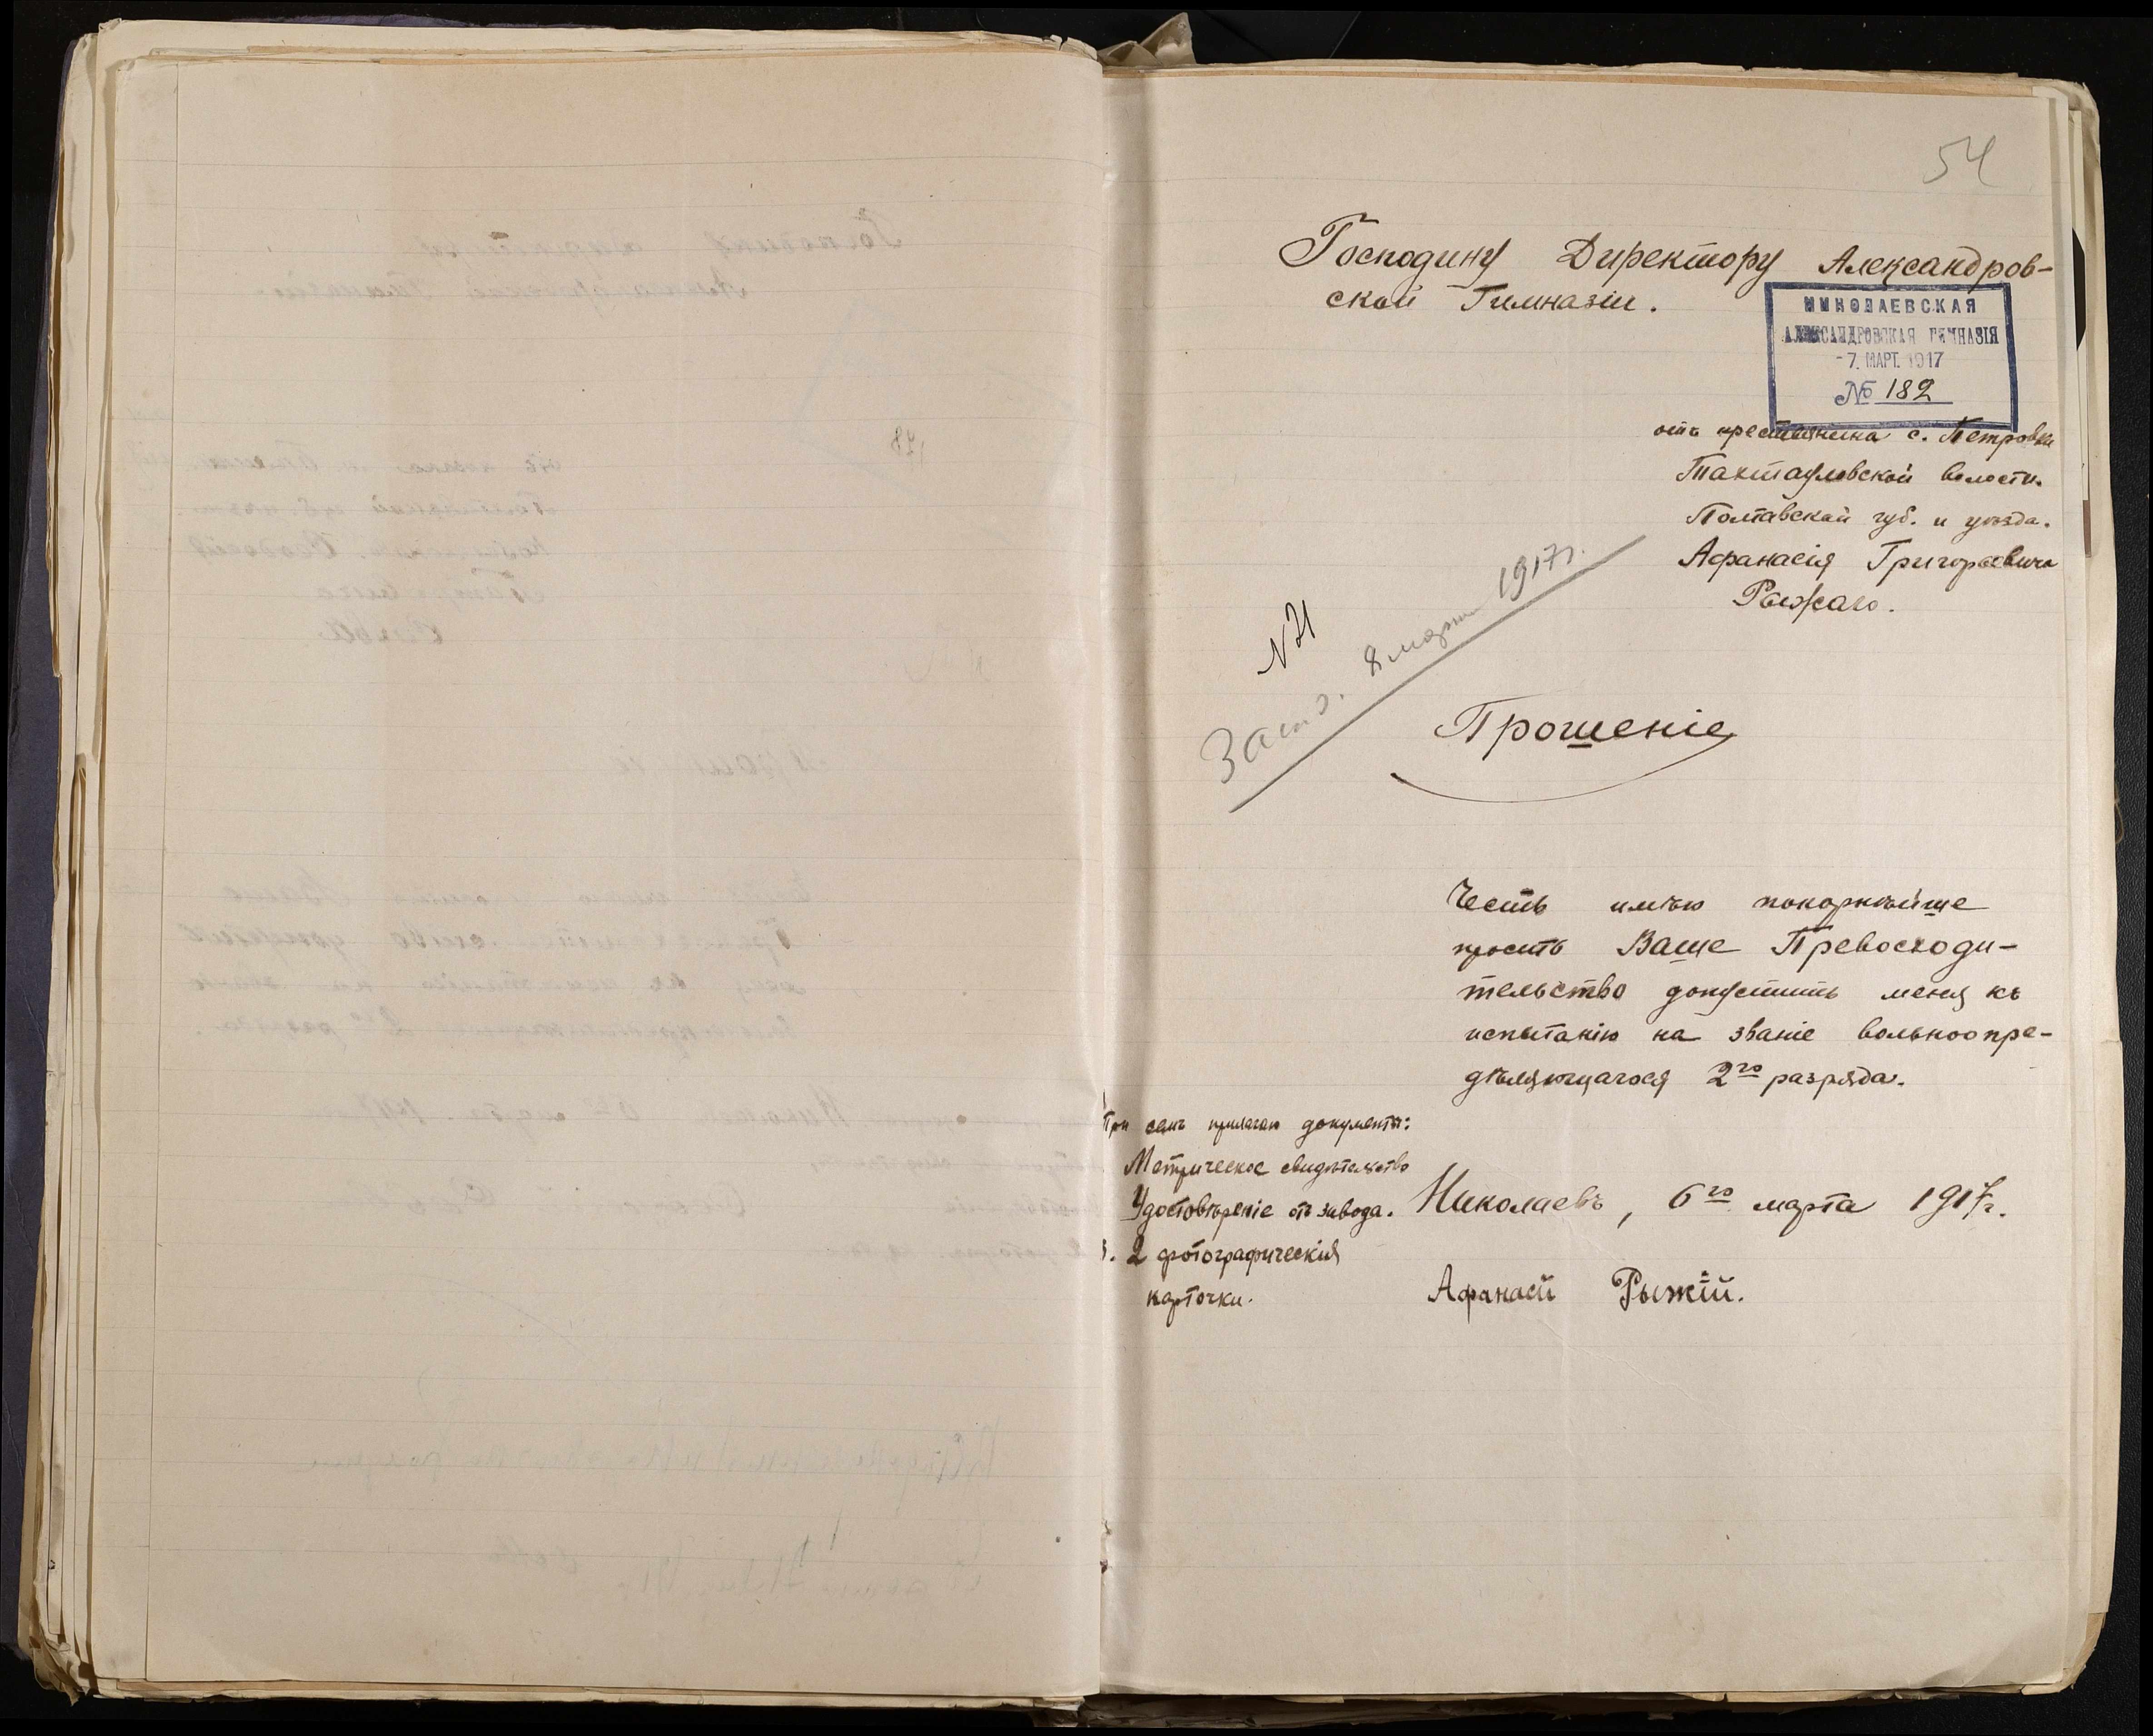 54
Господину Директору Александров-
ской Гимназіи.
НИКОЛАЕВСКАЯ
АЛЕКСАНДРОВСКАЯ ГИМНАЗІЯ
-7. МАРТ. 1917
№ 182
отъ крестьянина с. Петровки
Тахтауловской волости.
Полтавской губ. и уѣзда.
Афанасія Григорьевича
Рыжаго.
N 21
8 марта 1917г.
Прошеніе
Честь имѣю покорнѣйше
просить Ваше Превосходи-
тельство допустить меня къ
испытанію на званіе вольноопре-
дѣляющагося 2го разряда.
При семъ прилагаю документы:
Метрическое свидѣтельство
Удостовѣреніе отъ завода.
3. 2 фотографическія
карточки.
Николаевъ, 6го марта 1917г.
Афанасій Рыжій.